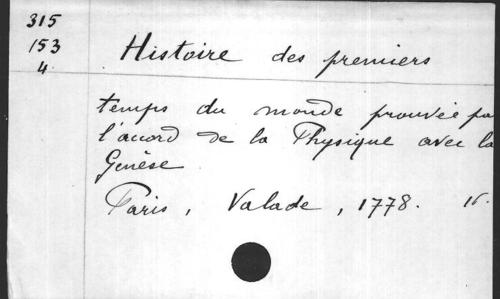 315
153
4.
Histoire des premiers
temps du monde prouvée pa
l'accord de la Physique avec la
Genèse.
Paris, Valade, 1778. 16.